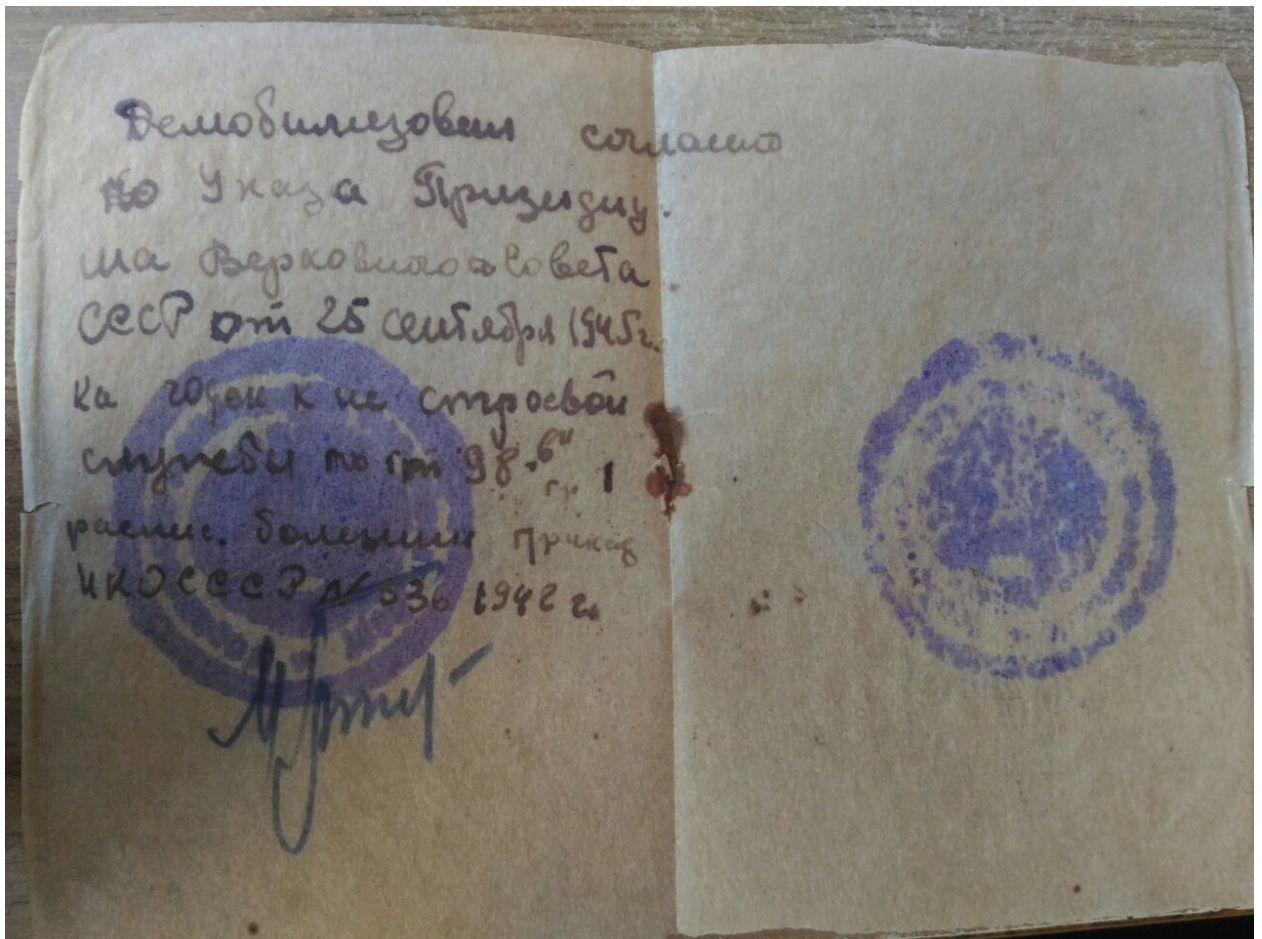 Демобилизован согласно
по Указа Призидиу-
ма Верховного Совета
СССР от 25 сентября 1945г.
как годен к не строевой
службы по ст 98 "б" гр 1
распис. болезний приказ
НКО СССР № 336 1942 г.